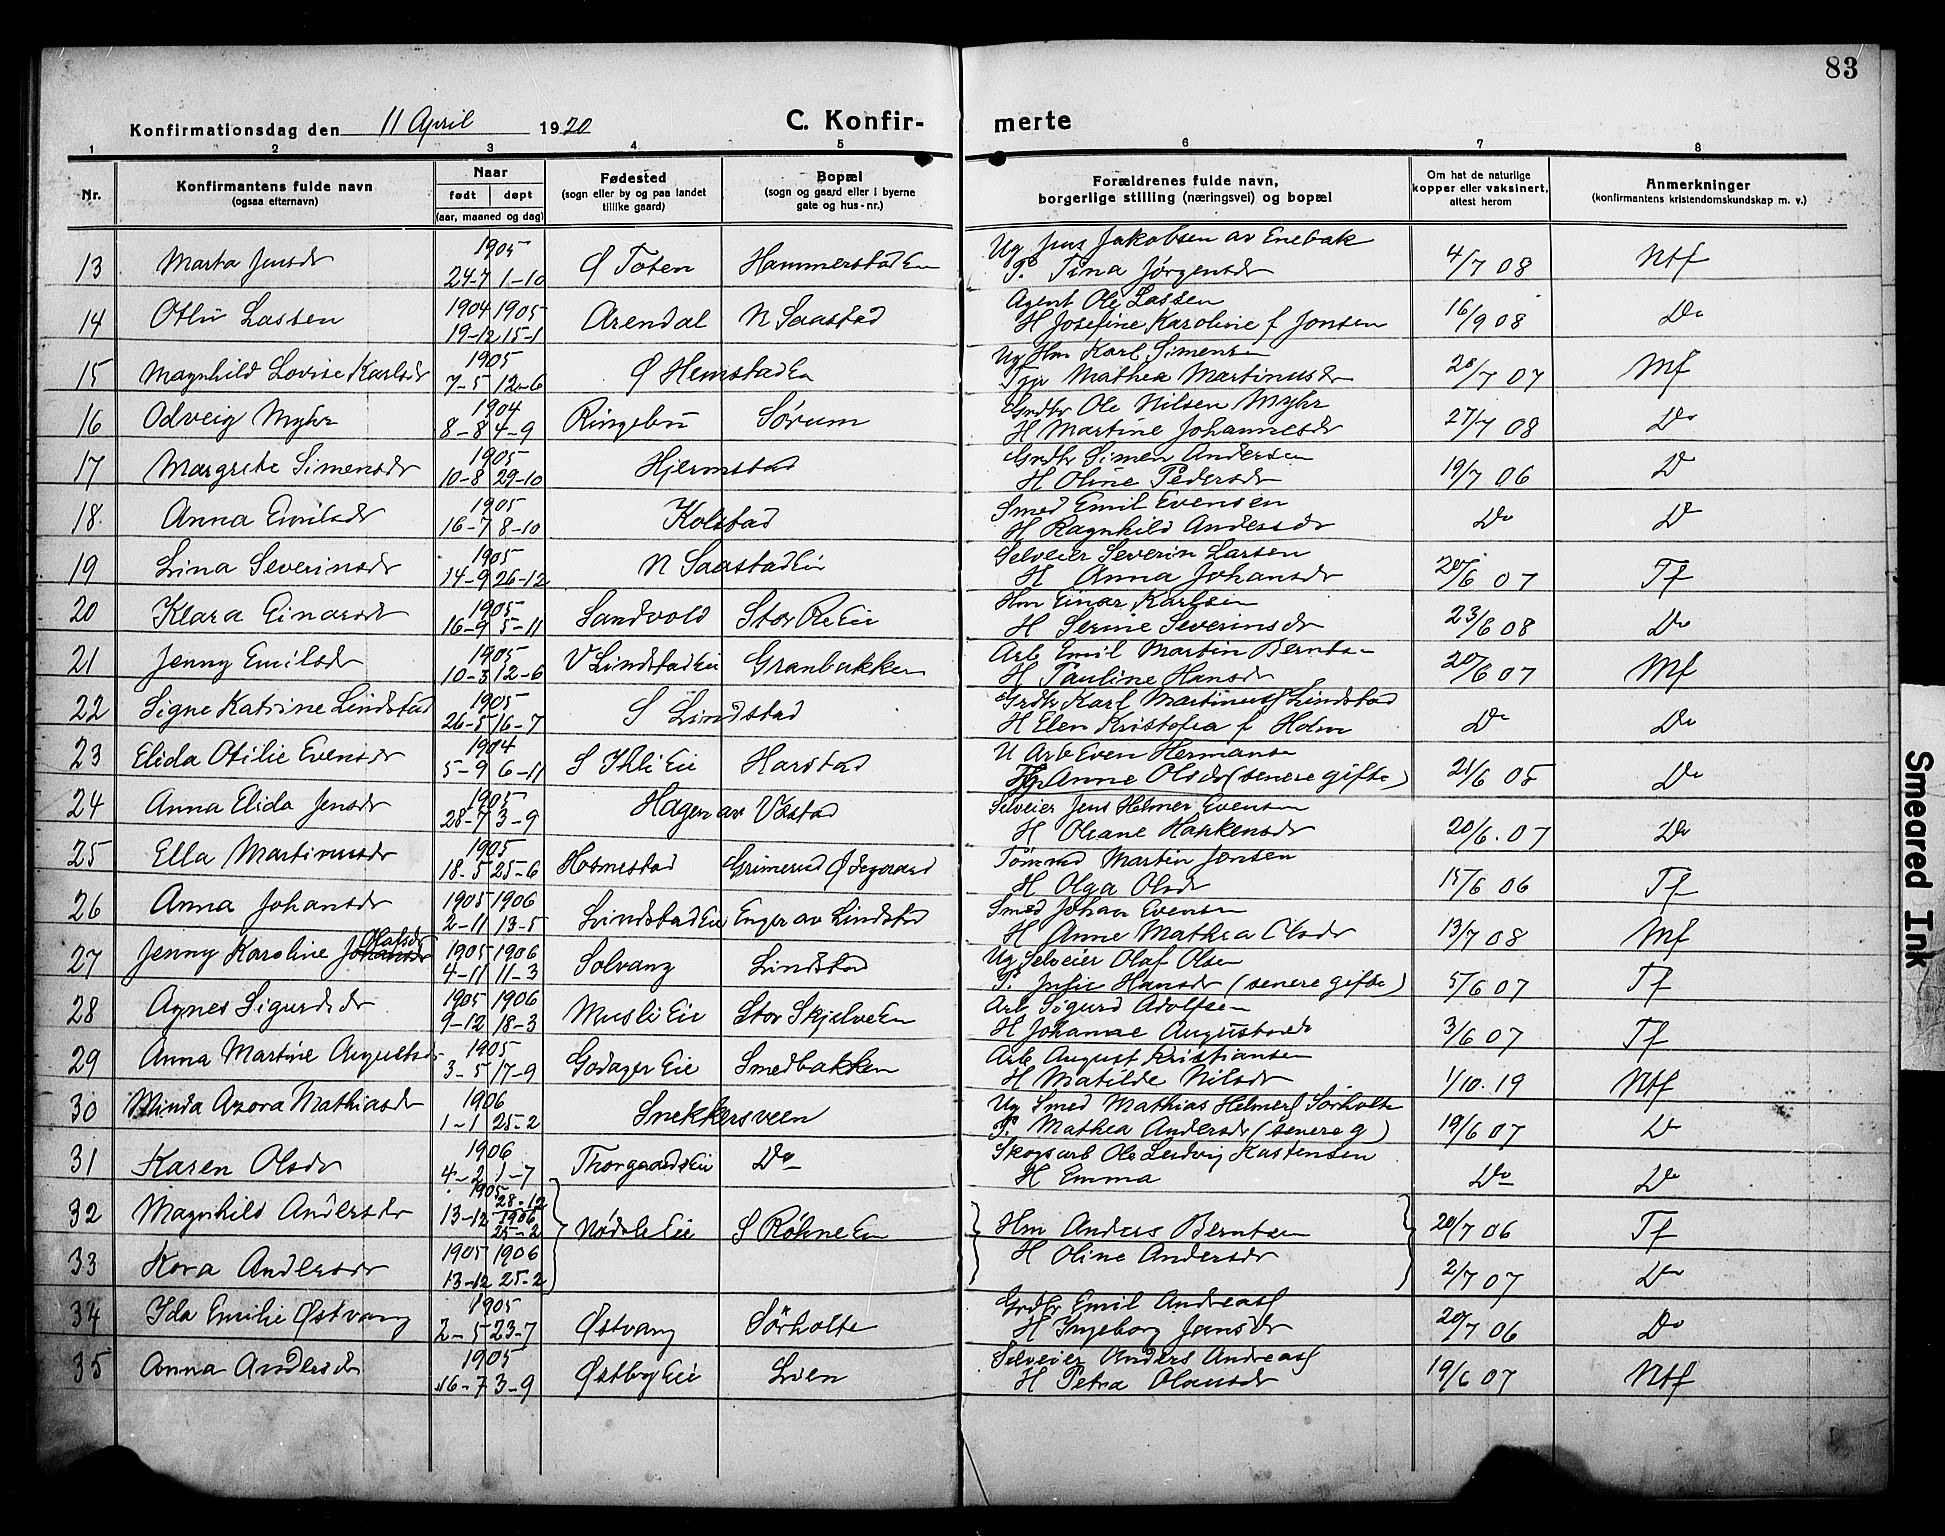 83
Konfirmationsdag den 11 April 1920 C. Konfir- merte
1 2 3 4 5 6 7 8
Nr. Konfirmantens fulde navn (ogsaa efternavn) Naar født døpt (aar, maaned og dag) Fødested (sogn eller by og paa landet tillike gaard) Bopæl (sogn og gaard eller i byerne gate og hus-nr.) Forældrenes fulde navn, borgerlige stilling (næringsvei) og bopæl Om hat de naturlige kopper eller vaksinert, attest herom Anmerkninger (konfirmantens kristendomskundskap m. v.)
1905 Ug Jens Jakobsen av Enebak
13 Marta Jensdr 24-7 1-10 Ø Toten HammerstadEn P. Tina Jørgensdr 4/7 08 Ntf
1904 1905 Agent Ole Lassen
14 Otlu Lassen 19-12 15-1 Arendal N Saastad H Josefine Karoline f Jonsen 16/9 08 Do
1905 Ug Hm Karl Simensen
15 Magnhild Lovise Karlsdr 7-5 12-6 Ø HemstadEn Tjp Mathea Martinusdr 28/7 07 Mf
1904 Grdbr Ole Nilsen Myhr
16 Odveig Myhr 8-8 4-9 Ringebu Sørum H Martine Johannesdr 27/7 08 Do
1905 Grdbr Simen Andersen
17 Margrete Simensdr 10-8 29-10 Hjermstad H Oline Pedersdr 19/7 06 Do
1905 Smed Emil Evensen
18. Anna Emilsdr 16-7 8-10 Kolstad H Ragnhild Andersdr Do Do
1905 Selveier Severin Larsen
19 Lina Severinsdr 14-9 26-12 N SaastadEie H Anna Johansdr 20/6 07 Tf
1905 Hm Einar Karlsen
20 Klara Einarsdr 16-9 5-11 Sandvold Stor ReEie H Serine Severinsdr 23/6 08 Do
1905 Arb Emil Martin Berntsen
21 Jenny Emilsdr 10-3 12-6 V LindstadEie Granbakken H Pauline Hansdr 20/6 07 Mf
1905 Grdbr Karl Martinus Lindstad
22 Signe Katrine Lindstad 26-5 16-7 S Lindstad H Elen Kristofia f Holm Do Do
1904 U Arb Even Hermansen
23 Elida Otilie Evensdr 5-9 6-11 S IhliEie Harstad Tjp Anne Olsdr (senere gifte) 21/6 05 Do
1905 Selveier Jens Helmer Evensen
24 Anna Elida Jensdr 28-7 3-9 Hagen av Vestad H Oleane Haakensdr 20/6. 07 Do
1905 Tømmd Martin Jensen
25 Ella Martinusdr 18-5 25-6 Homestad Grimerud Ødegaard H Olga Olsdr 15/6 06 Tf
1905 1906 Smed Johan Evensen
26 Anna Johansdr 2-11 13-5 LindstadEie Enger av Lindstad H Anne Mathea Olsdr 13/7 08 Mf
Olafsdr 1905 1906 Ug Selveier Olaf Olsen
27 Jenny Karoline Johansdr 4-11 11-3 Solvang Lindstad P. Julie Hansdr (senere gifte) 5/6 07 Tf
1905 1906 Arb Sigurd Adolfsen
28 Agnes Sigurdsdr 9-12 18-3 MusliEie Stor SkjelveEn H Johanne Augustsdr 3/6 07 Tf
1905 Arb August Kristiansen
29 Anna Martine Augustsdr 3-5 17-9 GodagerEie Smedbakken H Matilde Nilsdr 1/10. 19 Ntf
1906 Ug Smed Mathias Helmers Sørholte
30 Minda Azora Mathiasdr 1-1 25-2 Snekkersveen P. Mathea Andersdr (senere g) 19/6 07 Do
1906 Skogsarb Ole Ludvig Karstensen
31 Karen Olsdr 4-2 1-7 ThorgaardsEie Do H Emma Do Do
1905 28-12
32 Magnhild Andersdr 13-12 1906 25-2 NødsleEie S RøhneEn Hm Anders Berntsen 20/7 06 Tf
1905 1906 H Oline Andersdr
33 Kora Andersdr 13-12 25-2 2/7 07 Do
1905 Grdbr Emil Andreas
34 Ida Emilie Østvang 2-5 23-7 Østvang Sørholte H Ingeborg Jensdr 20/7 06 Do
1905 Selveier Anders Andreas
35 Anna Andersdr 16-7 3-9 ØstbyEie Lien H Petra Olausdr 19/6 07 Ntf
Smeared Ink